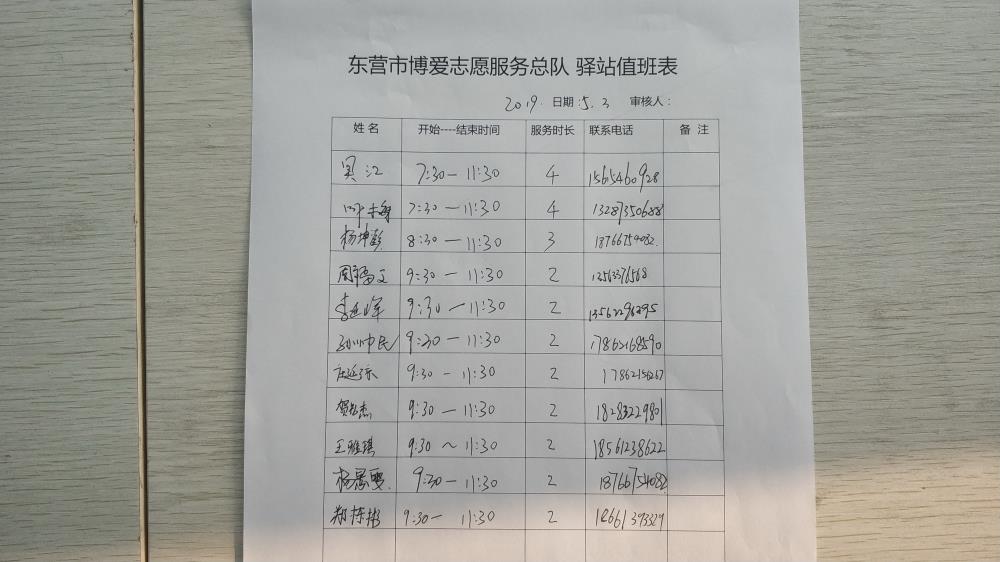 东营市博爱志愿服务总队 驿站值班表
2019. 日期: 5.3 审核人:
姓名 开始----结束时间 服务时长 联系电话 备 注
江 7:30—11:30 4 15654460928
7:30—11:30 4 13287350688
杨坤 8:30—11:30 3 18766754082.
周 9:30—11:30 2
李延军 9:30—11:30 2 13562296295
孙中民 9:30—11:30 2 17862168590
9:30-11:30 2 17862156267
贺 杰 9:30—11:30 2 18283229801
王雅琪 9:30~11:30 2 18561238622
杨 雯 9:30—11:30 2 18766754082
郑栋彬 9:30— 11:30 2